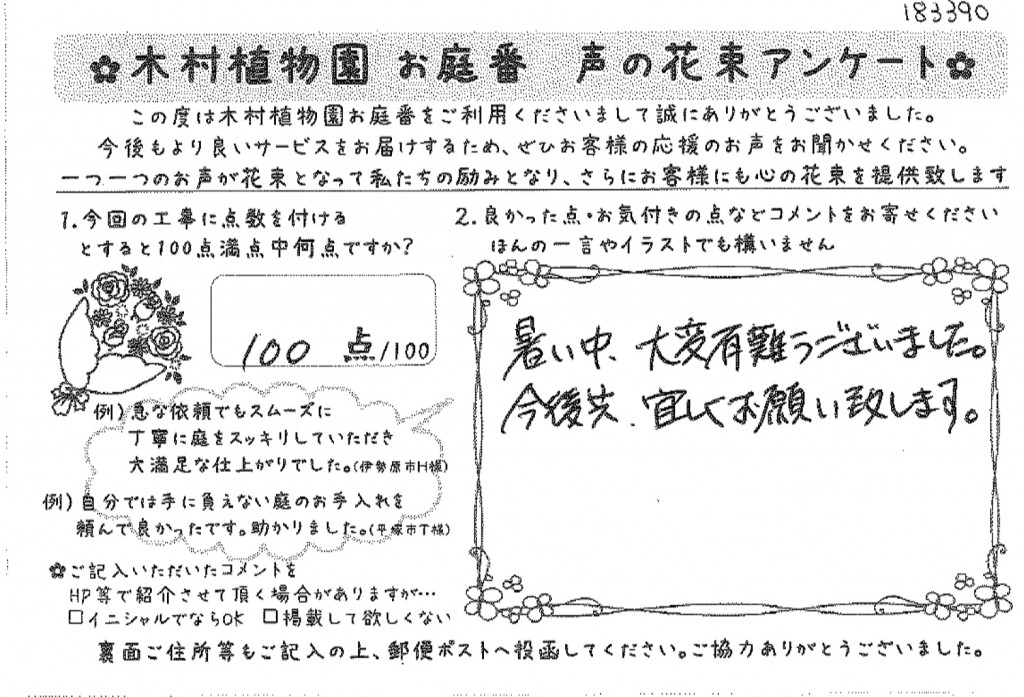 183390
木村植物園 お庭番 声の花束アンケート
この度は木村植物園お庭番をご利用くださいまして誠にありがとうございました。
今後もより良いサービスをお届けするため、ぜひお客様の応援のお声をお聞かせください。
一つ一つのお声が花束となって私たちの励みとなり、さらにお客様にも心の花束を提供致します
1.今回の工事に点数を付ける
とすると100点満点中何点ですか?
100 点/100
例)急な依頼でもスムーズに
丁寧に庭をスッキリしていただき
大満足な仕上がりでした。(伊勢原市H様)
例)自分では手に負えない庭のお手入れを
頼んで良かったです。助かりました。(平塚市T様)
✿ご記入いただいたコメントを
HP等で紹介させて頂く場合がありますが…
□イニシャルでならOK □掲載して欲しくない
2.良かった点・お気付きの点などコメントをお寄せください
ほんの一言やイラストでも構いません
暑い中、大変有難うございました。
今後共、宜しくお願い致します。
裏面ご住所等もご記入の上、郵便ポストへ投函してください。ご協力ありがとうございました。